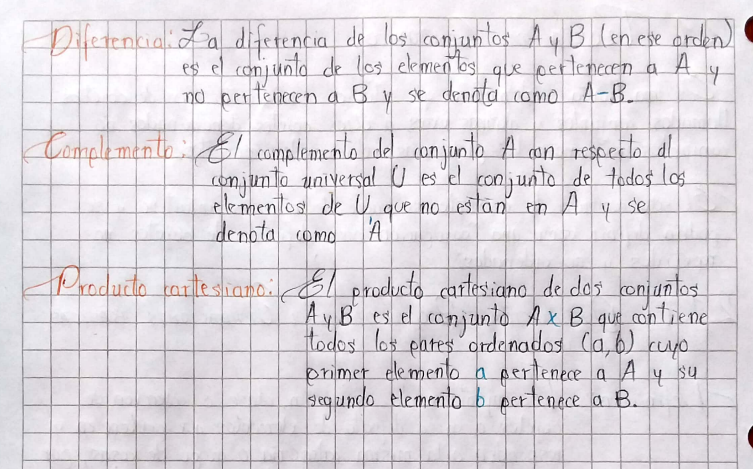 Diferencia: La diferencia de los conjuntos A y B (en ese orden)
es el conjunto de los elementos que pertenecen a A y
no pertenecen a B y se denota como A-B.
Complemento: El complemento del conjunto A con respecto al
conjunto universal U es el conjunto de todos los
elementos de U que no están en A y se
denota como 'A
Producto cartesiano: El producto cartesiano de dos conjuntos
A y B es el conjunto A x B que contiene
todos los pares ordenados (a,b) cuyo
primer elemento a pertenece a A y su
segundo elemento b pertenece a B.